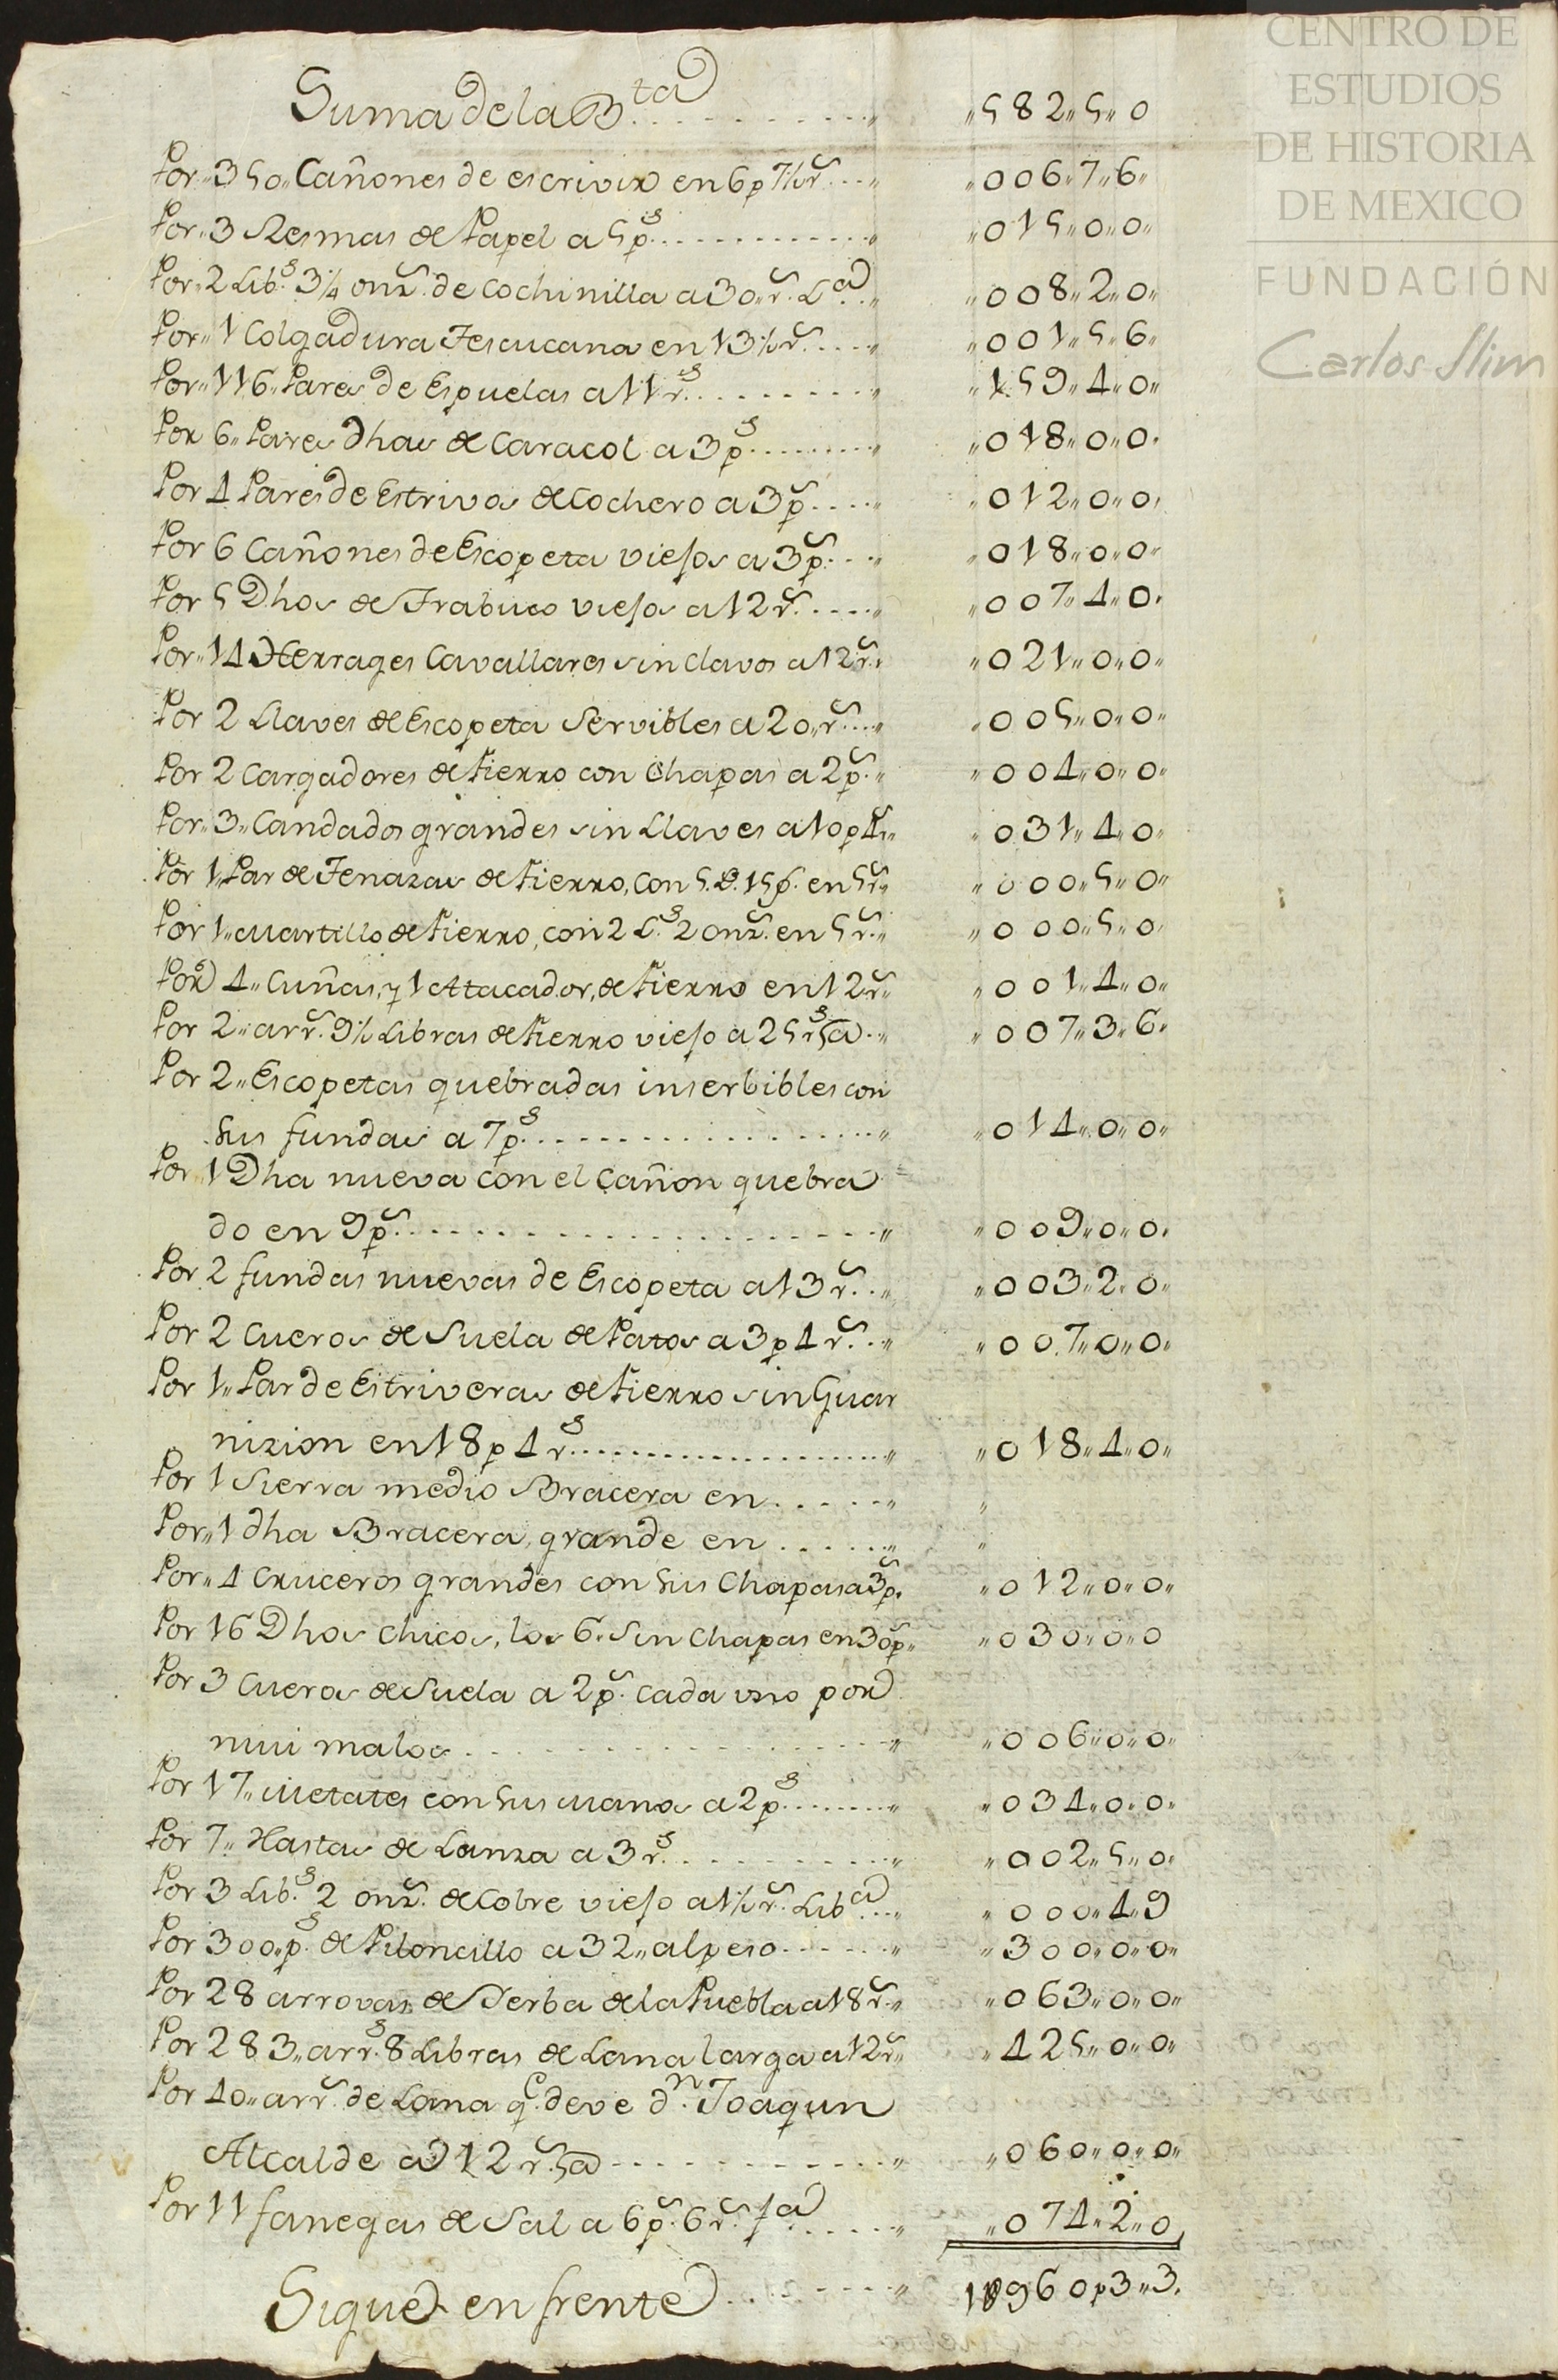 CENTRO DE
ESTUDIOS
DE HISTORIA
DE MEXICO
FUNDACIÓN
Carlos Slim
Suma de la B.ta ,,582,,5,,0
Por,,350,,Cañones de escrivir en 6p 7½ r.s ,,006,,7,,6,,
Por,,3 Resmas de Papel a 5p.s ,,015,,0,,0,,
Por,,2 Lib.s 3¼ onz.s de Cochinilla a 30,,r.s L.a ,,008,,2,,0,,
Por,,1 Colgadura Tescucana en 13½ r.s ,,001,,5,,6,,
Por,,116,,Pares de Espuelas a 11 r.s ,,159,,4,,0,,
Por 6,,Pares Dhas de Caracol a 3p.s ,,018,,0,,0,,
Por 4 Pares de Estrivos de Cochero a 3p.s ,,012,,0,,0,,
Por 6 Cañones de Escopeta viejos a 3p.s ,,018,,0,,0,,
Por 5 Dhos de Trabuco viejos a 12 r.s ,,007,,4,,0,,
Por,,14 Herrages Cavallares sin Clavos a 12 r.s ,,021,,0,,0,,
Por 2 Llaves de Escopeta Servibles a 20,,r.s ,,005,,0,,0,,
Por 2 Cargadores de fierro con Chapas a 2p.s ,,004,,0,,0,,
Por,,3,,Candados grandes sin Llaves a 10p4r.s ,,031,,4,,0,,
Por 1,,Par de Tenazas de fierro, con 5.L.15 en 5r.s ,,000,,5,,0,,
Por 1,,Martillo de fierro, con 2 L.s 2 onz.s en 5 r.s ,,000,,5,,0
Por 4,,Cuñas, y 1 Atacador, de fierro en 12 r.s ,,001,,4,,0,,
Por 2,,arr.s 9½ Libras de fierro viejo a 25 r.s @ ,,007,,3,,6,,
Por 2,,Escopetas quebradas inserbibles con
sus fundas a 7p.s ,,014,,0,,0,,
Por,,1 Dha nueva con el Cañon quebra
do en 9p.s ,,009,,0,,0,,
Por 2 fundas nuevas de Escopeta a 13 r.s ,,003,,2,,0,,
Por 2 Cueros de Suela de Patos a 3p 4 r.s ,,007,,0,,0,,
Por 1,,Par de Estriveras de fierro sin Guar
nizion en 18p 4 r.s ,,018,,4,,0,,
Por 1 Sierra medio Bracera en ,,
Por,,1 dha Bracera, grande en ,,
Por,,4 Cruceros grandes con sus Chapas a 3p.s ,,012,,0,,0,,
Por 16 Dhos chicos, los 6,,Sin Chapas en 30p.s ,,030,,0,,0
Por 3 Cueros de Suela a 2p.s cada uno por
mui malos ,,006,,0,,0,,
Por 17,,Metates con sus manos a 2p.s ,,034,,0,,0,,
Por 7,,Hastas de Lanza a 3 r.s ,,002,,5,,0,,
Por 3 Lib.s 2 onz.s de Cobre viejo a 1½ r.s Lib.a ,,000,,4,,9
Por 300,,p.s de Piloncillo a 32,,al peso ,,300,,0,,0,,
Por 28 arrovas de Yerba de la Puebla a 18 r.s ,,063,,0,,0,,
Por 283,,arr.s 8 Libras de Lana larga a 12 r.s ,,425,,0,,0,,
Por 40,,arr.s de Lana q.e deve d.n Joaqun
Alcalde a 12 r.s @ ,,060,,0,,0,,
Por 11 fanegas de Sal a 6p.s 6 r.s f.a ,,074,,2,,0,,
Sigue en frente 1960p3,,3,,